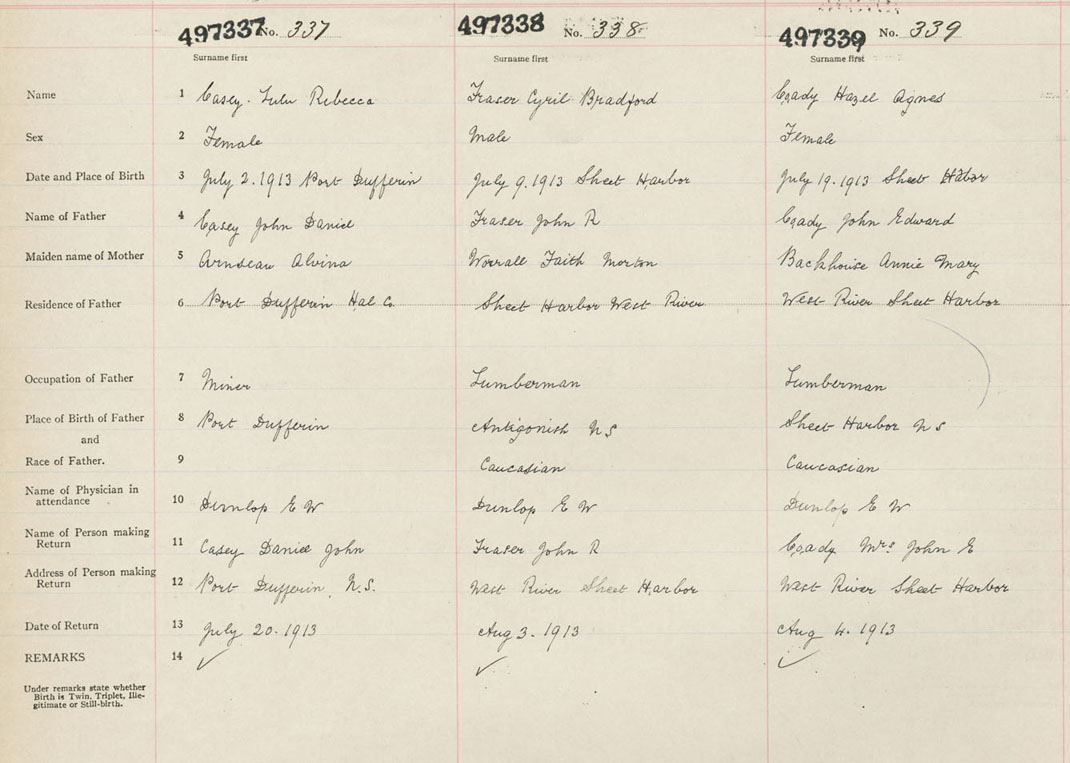 497337 No. 337 497338 No. 338 497339 No. 339
Surname first Surname first Surname first
Name 1 Casey. Lulu Rebecca Fraser Cyril Bradford Coady Hazel Agnes
Sex 2 Female Male Female
Date and Place of Birth 3 July 2. 1913 Port Dufferin July 9. 1913 Sheet Harbor July 19. 1913 Sheet Habor
Name of Father 4 Casey John Daniel Fraser John R Coady John Edward
Maiden name of Mother 5 Alvina Worrall Faith Morton Backhouse Annie Mary
Residence of Father 6 Port Dufferin Hal Co. Sheet Harbor West River West River Sheet Harbor
Occupation of Father 7 Miner Lumberman Lumberman
Place of Birth of Father 8 Port Dufferin Antigonish N S Sheet Harbor N S
and
Race of Father. 9 Caucasian Caucasian
Name of Physician in
attendance 10 Dunlop E W Dunlop E W Dunlop E W
Name of Person making
Return 11 Casey Daniel John Fraser John R Coady Mrs John E
Address of Person making
Return 12 Port Dufferin, N.S. West River Sheet Harbor West River Sheet Harbor
Date of Return 13 July 20. 1913 Aug 3. 1913 Aug 4. 1913
REMARKS 14 ✓ ✓ ✓
Under remarks state whether
Birth is Twin, Triplet, Ille-
gitimate or Still-birth.